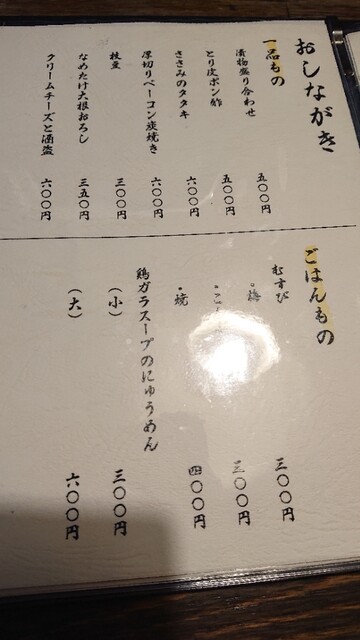 おしながき
一品もの
漬物盛り合わせ 五〇〇円
とり皮ポン酢 五〇〇円
ささみのタタキ 六〇〇円
厚切りベーコン炭焼き 六〇〇円
枝豆 三〇〇円
なめたけ大根おろし 三五〇円
クリームチーズと酒盗 六〇〇円
ごはんもの
むすび
・梅 三〇〇円
三〇〇円
・焼 四〇〇円
鶏ガラスープのにゅうめん
(小) 三〇〇円
(大) 六〇〇円